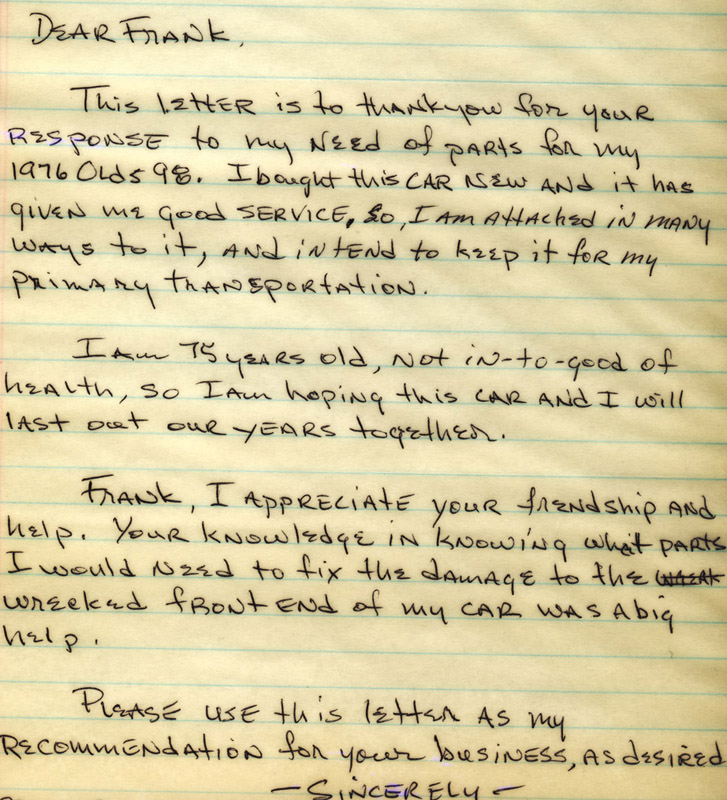 DEAR FRANK,
This letter is to thankyou for your
RESPONSE to my need of parts for my
1976 Olds 98. I bought this CAR NEW AND it has
given me good SERVICE, So, I AM Attached IN MANY
ways to it, AND intend to keep it for my
primary transportation.
I am 75 years old, not in-to-good of
health, so I am hoping this CAR AND I will
last out our YEARS together.
FRANK, I APPRECIATE your frendship AND
help. Your knowledge in knowing what PARTS
I would need to fix the damage to the
wrecked front END of my CAR was a big
help.
PLEASE use this letter AS my
RECOMMENDATION for your business, AS desired
- SINCERELY -